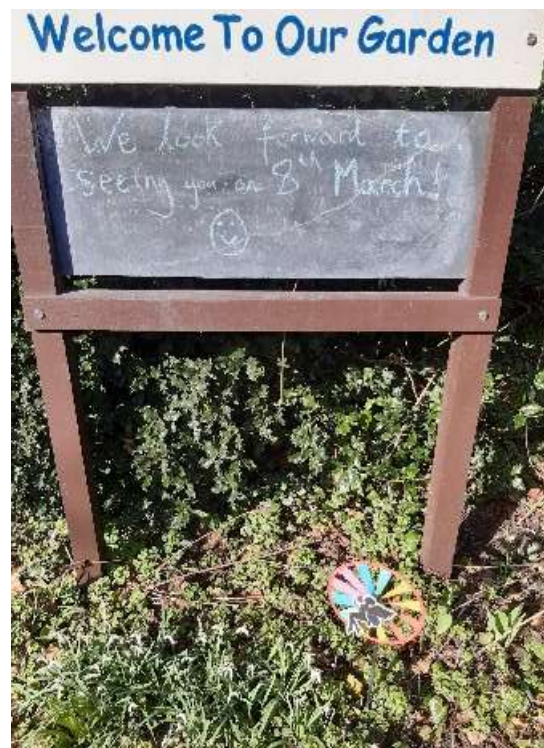 Welcome To Our Garden
We look forward to
seeing you on 8th March!